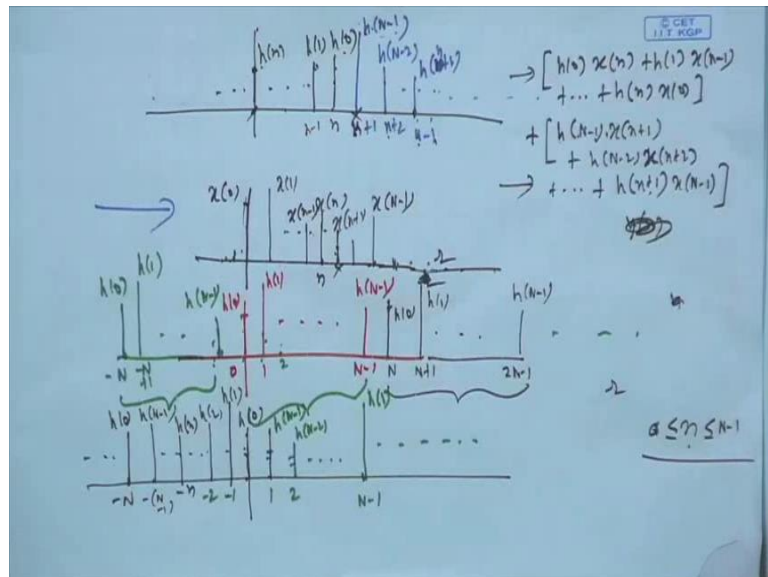 © CET
I.I.T. KGP
h(n) h(1) h(0) h(N-1) h(N-2) h(n+1)
n-1 n n+1 n+2 N-1
→ [h(0) x(n) + h(1) x(n-1)
+ ... + h(n) x(0)]
+ [h(N-1) x(n+1)
+ h(N-2) x(n+2)
→ + ... + h(n+1) x(N-1)]
x(0) x(1) x(n-1) x(n) x(n+1) x(N-1)
n r
h(0) h(1) h(N-1) h(0) h(1) h(N-1) h(0) h(1) h(N-1)
-N -N+1 0 1 2 N-1 N N+1 2N-1
r
0 ≤ n ≤ N-1
h(0) h(N-1) h(n) h(2) h(1) h(0) h(N-1) h(N-2) h(1)
-N -(N-1) -n -2 -1 1 2 N-1